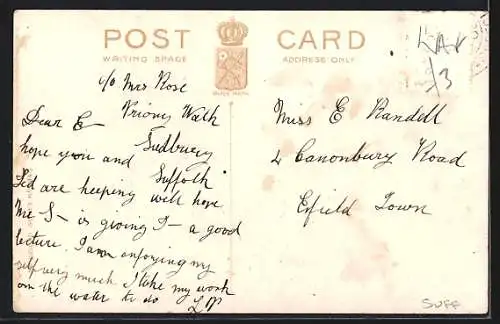 POST CARD
WRITING SPACE
ADDRESS ONLY
c/o Mrs Rose
Priory Walk
Sudbury
Suffolk
Dear E
hope you and
Ted are keeping well hope
Mr S- is giving T- a good
lecture. I am enjoying my
self very much I take my work
on the water to do
Miss E Randell
4 Canonbury Road
Efield Town
/3
SUFF